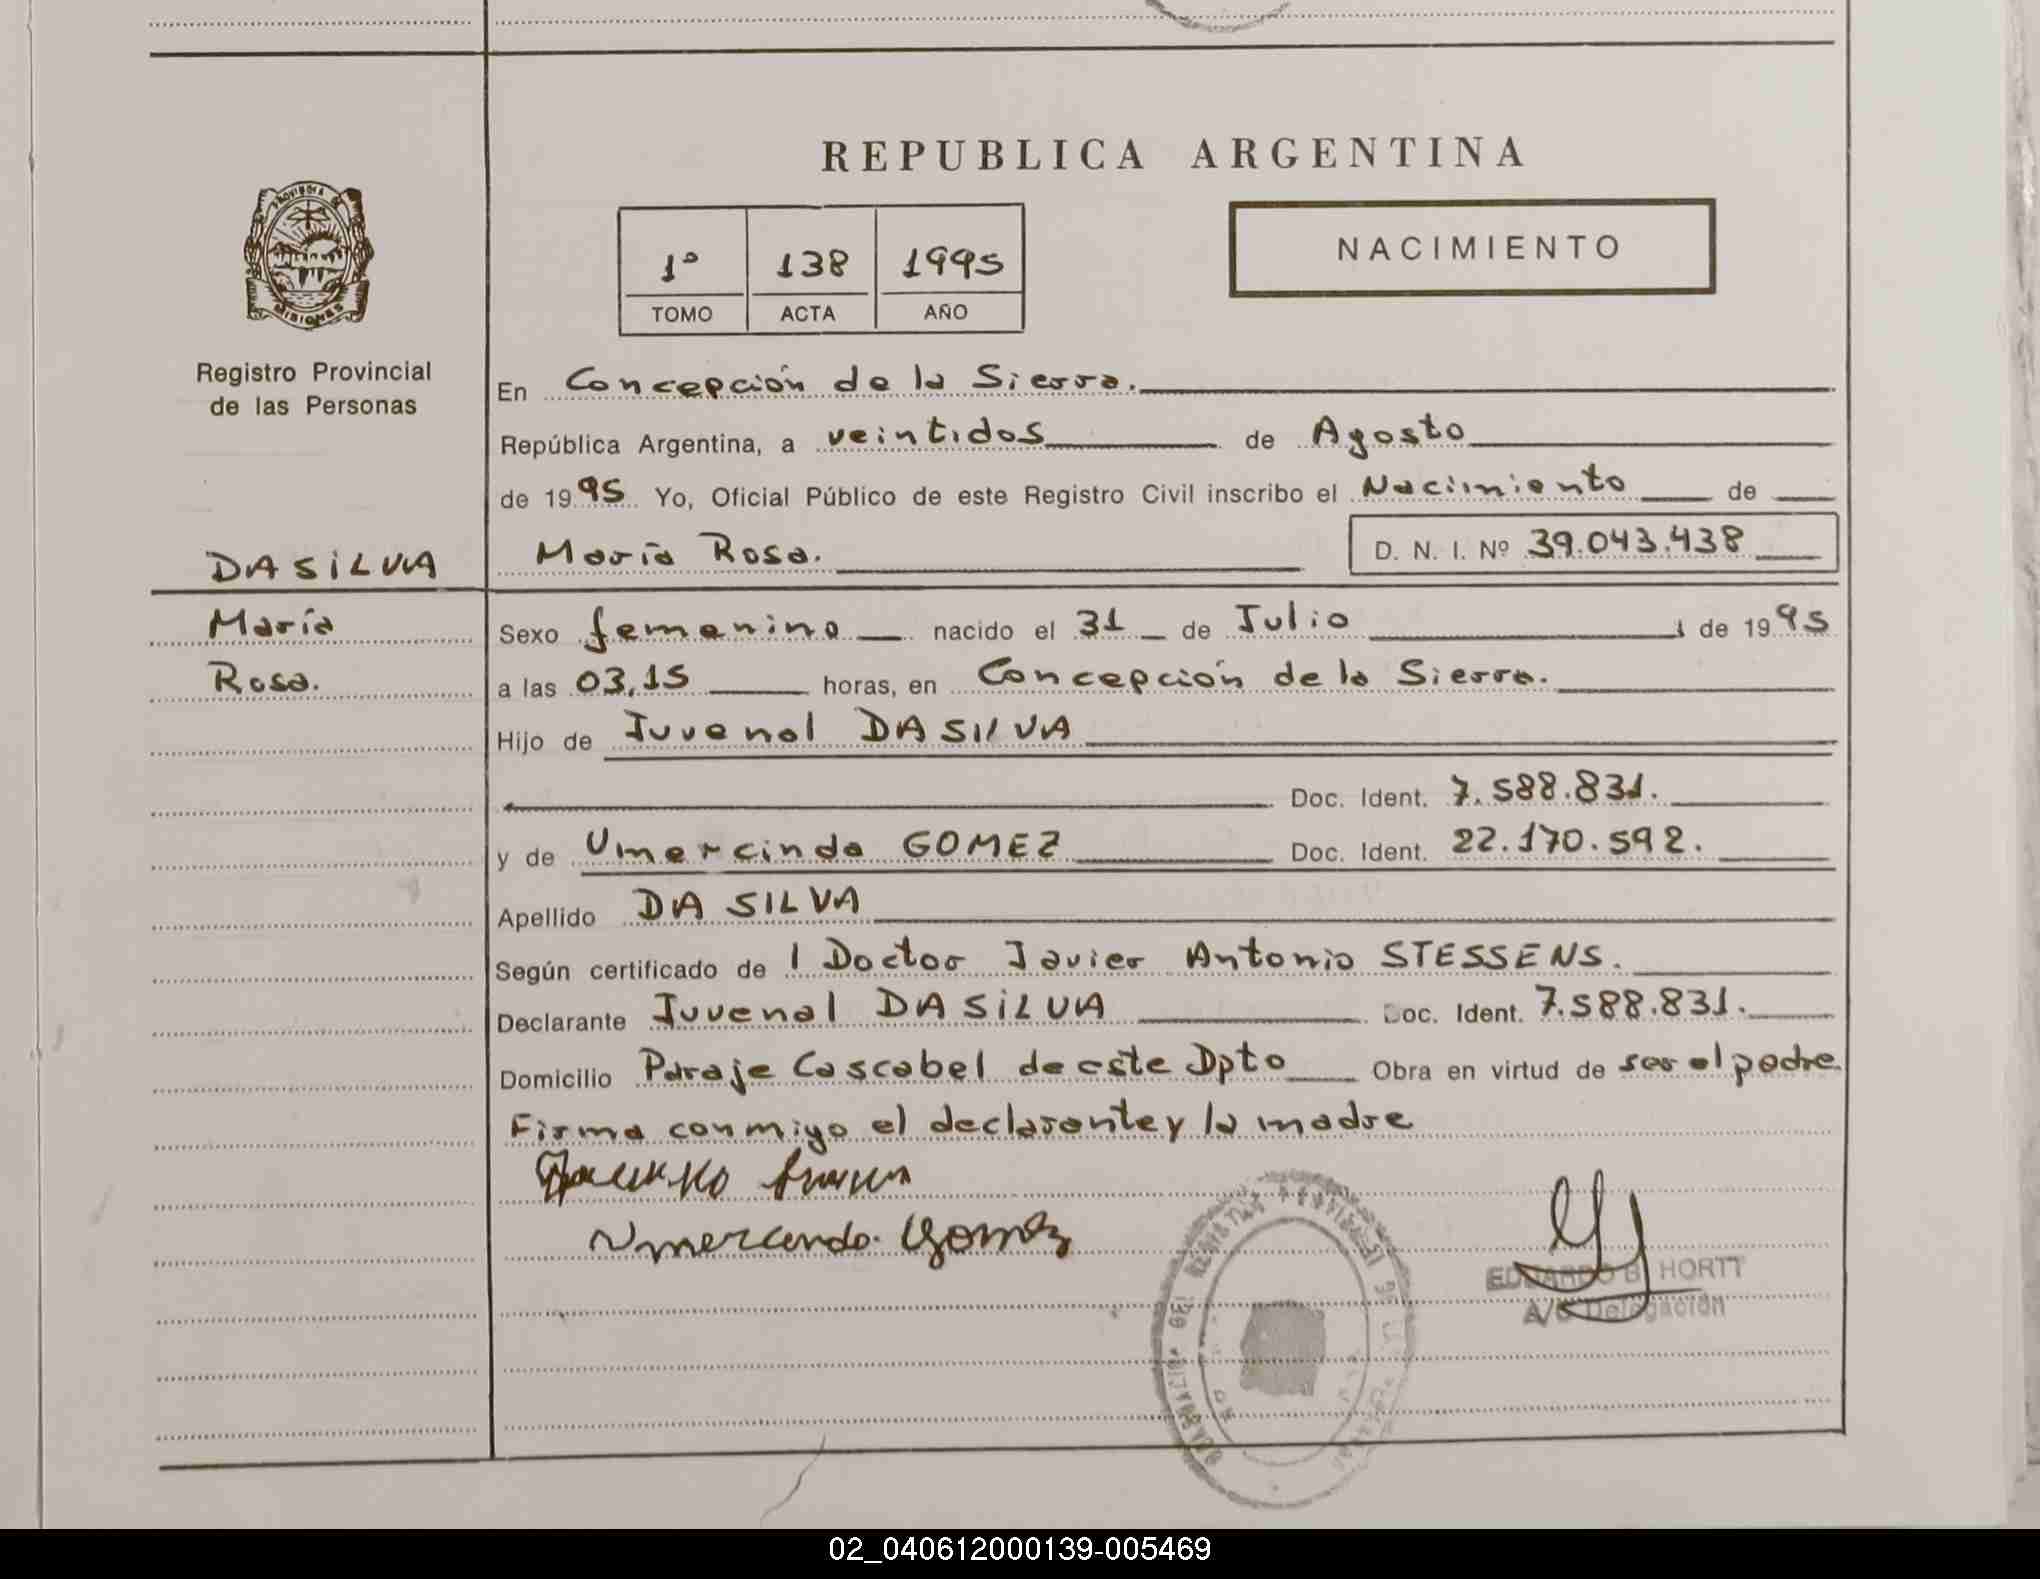 REPUBLICA ARGENTINA
PROVINCIA DE
MISIONES
Registro Provincial
de las Personas
1º 138 1995
TOMO ACTA AÑO
NACIMIENTO
En Concepción de la Sierra.
República Argentina, a veintidos de Agosto
de 1995 Yo, Oficial Público de este Registro Civil inscribo el Nacimiento de
DA SILVA
María Rosa. D. N. I. Nº 39.043.438
María
Sexo femenino nacido el 31 de Julio de 1995
Rosa.
a las 03,15 horas, en Concepción de la Sierra.
Hijo de Juvenal DA SILVA
Doc. Ident. 7.588.831.
y de Umercinda GOMEZ Doc. Ident. 22.170.592.
Apellido DA SILVA
Según certificado de l Doctor Javier Antonio STESSENS.
Declarante Juvenal DA SILVA Doc. Ident. 7.588.831.
Domicilio Paraje Cascabel de este Dpto Obra en virtud de ser el padre
Firma conmigo el declarante y la madre
Gomez
EDUARDO B. HORTT
A/C Delegación
02_040612000139-005469